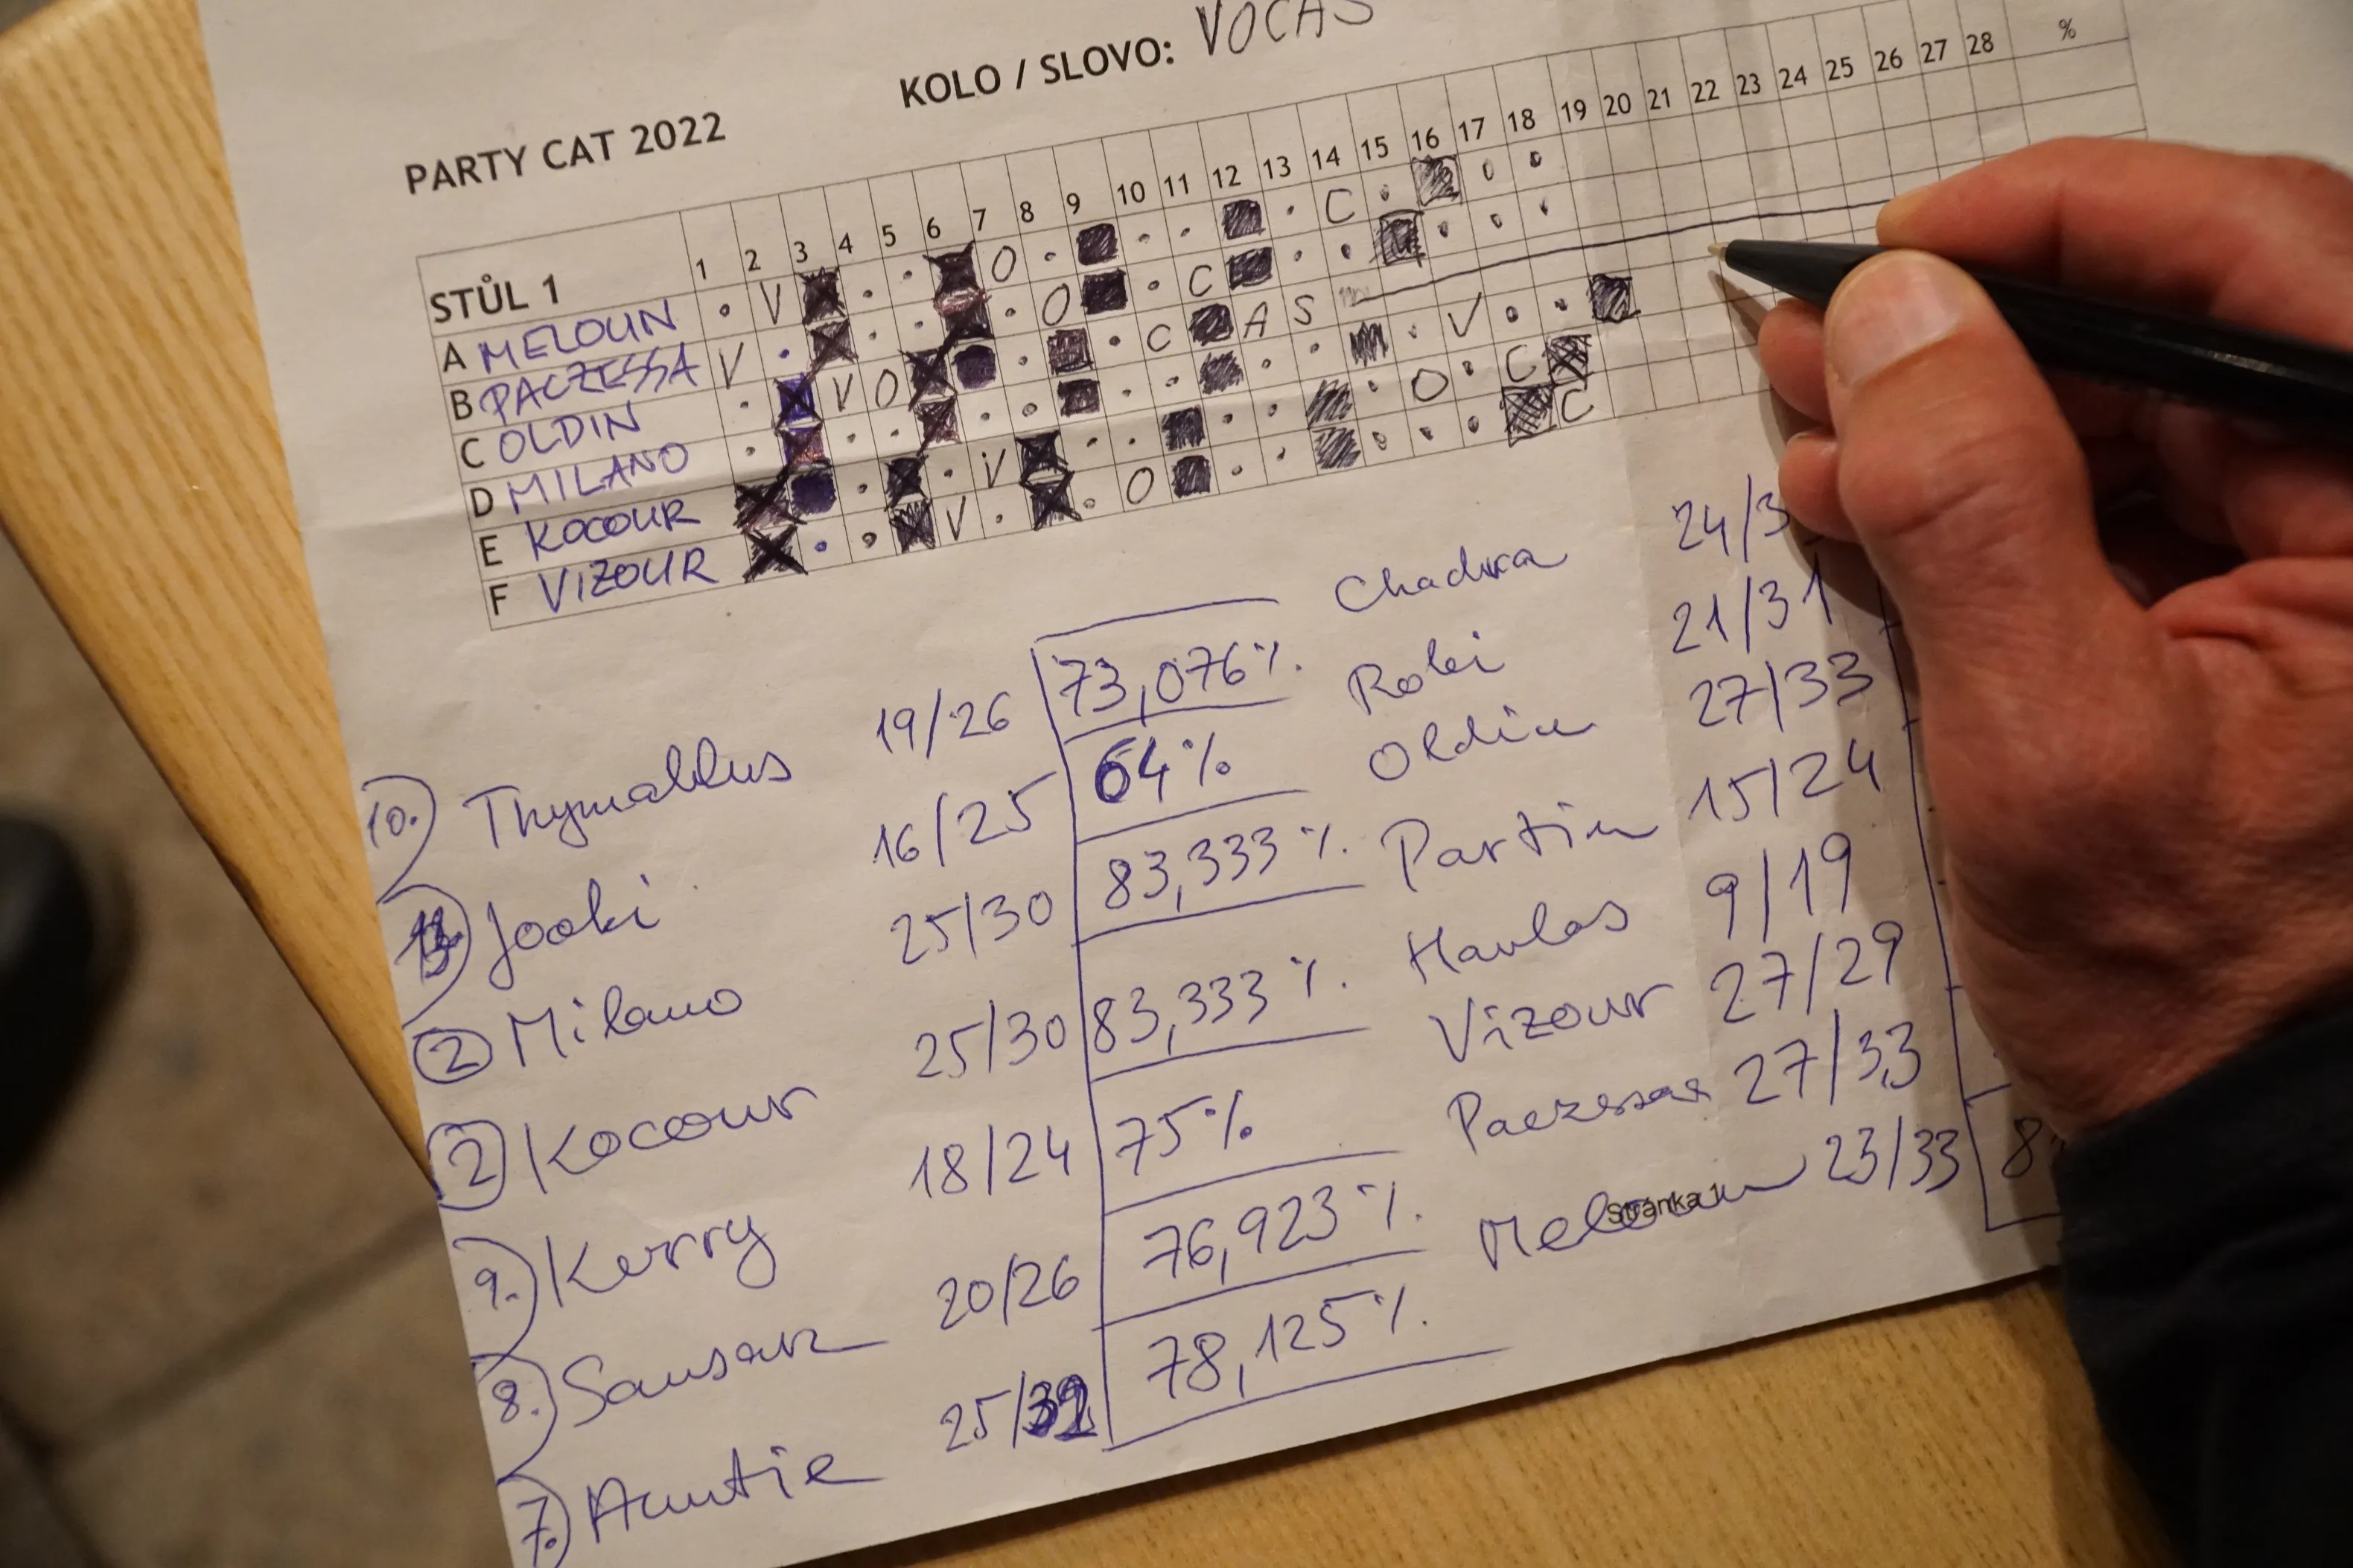 PARTY CAT 2022 KOLO / SLOVO: VOCAS
STŮL 1 1 2 3 4 5 6 7 8 9 10 11 12 13 14 15 16 17 18 19 20 21 22 23 24 25 26 27 28 %
A MELOUN . V . . . O . . . . C . . .
B PACZESSA V . . . . O . C . . . . .
C OLDIN . V O . . C A S
D MILANO . . . . . . . . . . V . .
E KOCOUR . . V . . . . . O . C
F VIZOUR . . V . . O . . . . . C
10. Thymallus 19/26 73,076%
Jooki 16/25 64%
2 Milano 25/30 83,333%
2 Kocour 25/30 83,333%
9. Kerry 18/24 75%
8. Sausarz 20/26 76,923%
7. Auntie 25/32 78,125%
Chadwa 24/3
Robi 21/31
Oldin 27/33
Partin 15/24
Havlas 9/19
Vizour 27/29
Paczessa 27/33
Meloun 23/33 8
Stránka 1